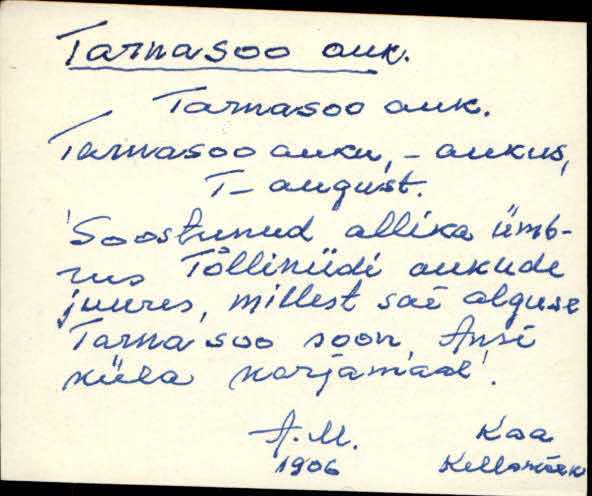 Tarnasoo auk.
Tarnasoo auk.
Tarnasoo auku, - aukus,
T- august.
'Soostunud allika ümb-
rus Tõlliniidi aukude
juures, millest sai alguse
Tarna soo soon, Ansi
küla karjamaal'.
A.M. Kaa
1906 Kellamäe